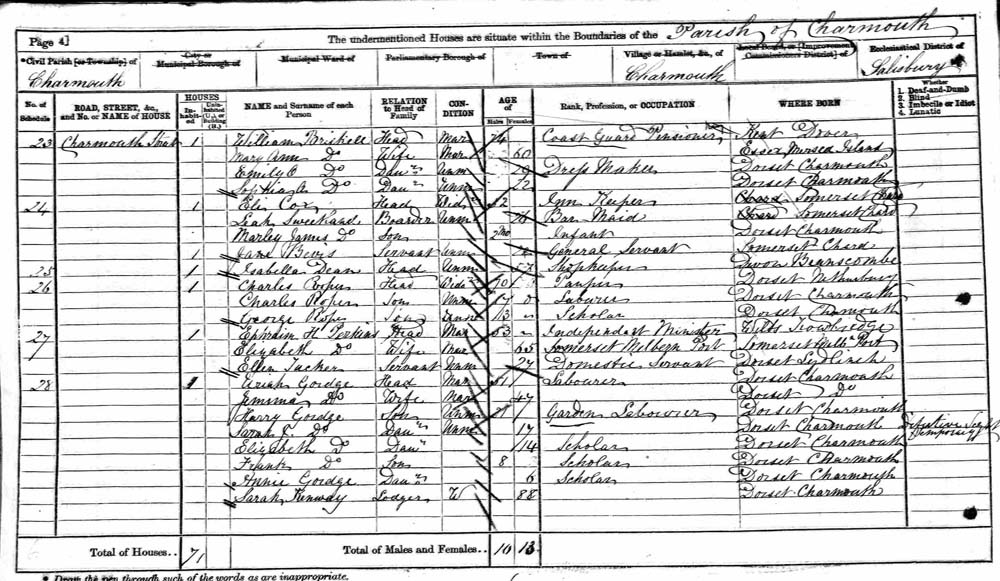 Page 4]
The undermentioned Houses are situate within the Boundaries of the Parish of Charmouth
*Civil Parish [or Township] of Charmouth
City or Municipal Borough of
Municipal Ward of
Parliamentary Borough of
Town of
Village or Hamlet, &c., of Charmouth
Local Board, or [Improvement Commissioners District] of
Ecclesiastical District of Salisbury
No. of Schedule
ROAD, STREET, &c., and No. or NAME of HOUSE
HOUSES
Inhabited
Uninhabited (U.), or Building (B.)
NAME and Surname of each Person
RELATION to Head of Family
CONDITION
AGE of
Males
Females
Rank, Profession, or OCCUPATION
WHERE BORN
Whether
1. Deaf-and-Dumb
2. Blind
3. Imbecile or Idiot
4. Lunatic
23 Charmouth Street 1 William Brickell Head Mar 74 Coast Guard Pensioner Kent Dover
Mary Ann Do Wife Mar 60 Essex Mersea Island
Emily E Do Daur Unm Dress Maker Dorset Charmouth
Sophia A Do Daur Unm 22 Dorset Charmouth
24 1 Eli Cox Head Wid 52 Inn Keeper Somerset Chard
Leah Boarder Unm Bar Maid Somerset Chard
Marley James Do Son 2 Mo Infant Dorset Charmouth
1 Jane Servant Unm General Servant Somerset Chard
25 1 Isabella Dean Head Unm 57 Shopkeeper Devon
26 1 Charles Roper Head Widr 70 Pauper Dorset
Charles Roper Son Unm 17 Labourer Dorset Charmouth
George Roper Son Unm 13 Scholar Dorset Charmouth
27 1 Ephraim H Perkins Head Mar 53 Independant Minister Wilts
Elizabeth Do Wife Mar 65 Somerset Milborn Port
Ellen Tucker Servant Unm 27 Domestic Servant Dorset
28 1 Uriah Gordge Head Mar 51 Labourer Dorset Charmouth
Jemima Do Wife Mar 47 Dorset Do
Harry Gordge Son Unm Garden Labourer Dorset Charmouth
Sarah Do Daur Unm 17 Dorset Charmouth
Elizabeth Do Daur 14 Scholar Dorset Charmouth
Frank Do Son 8 Scholar Dorset Charmouth
Annie Gordge Daur 6 Scholar Dorset Charmouth
Sarah Kenway Lodger W 88 Dorset Charmouth
Total of Houses.. 7
Total of Males and Females.. 10 13
* Draw the pen through such of the words as are inappropriate.